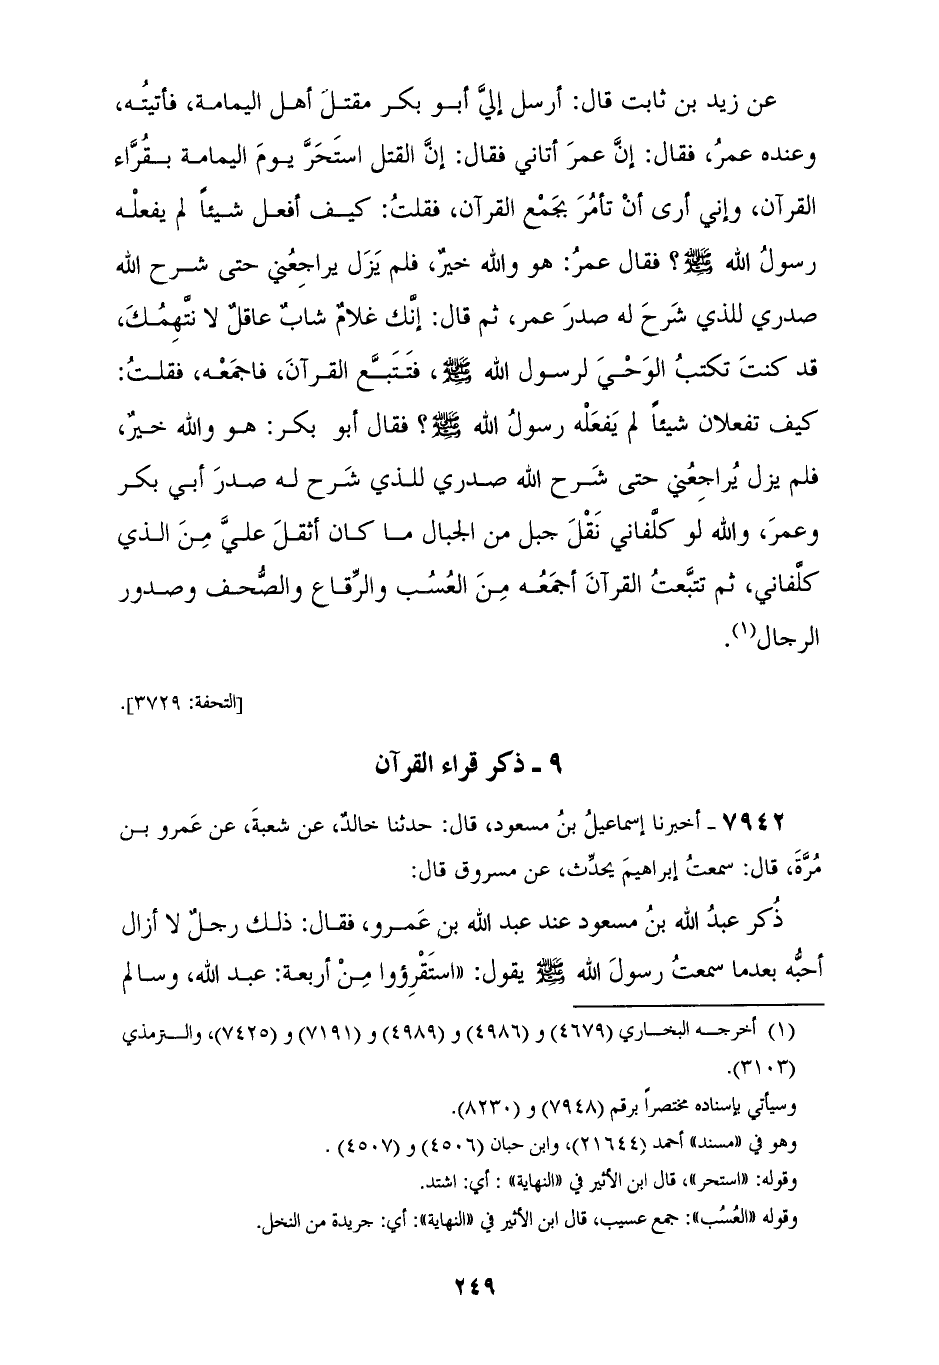 عن زيد بن ثابت قال: أرسل إليَّ أبو بكر مقتلَ أهل اليمامة، فأتيتُه،
وعنده عمرُ، فقال: إنَّ عمرَ أتاني فقال: إنَّ القتل استَحَرَّ يومَ اليمامة بقُرَّاء
القرآن، وإني أرى أنْ تأمُرَ بجَمْع القرآن، فقلتُ: كيف أفعل شيئاً لم يفعلْه
رسولُ الله ﷺ؟ فقال عمرُ: هو والله خيرٌ، فلم يَزَل يراجِعُني حتى شرح الله
صدري للذي شَرحَ له صدرَ عمر، ثم قال: إنَّك غلامٌ شابٌ عاقلٌ لا نتَّهِمُكَ،
قد كنتَ تكتبُ الوَحْيَ لرسول الله ﷺ، فتَتَبَّع القرآنَ، فاجمَعْه، فقلتُ:
كيف تفعلان شيئاً لم يَفعَلْه رسولُ الله ﷺ؟ فقال أبو بكر: هو والله خيرٌ،
فلم يزل يُراجِعُني حتى شَرح الله صدري للذي شَرح له صدرَ أبي بكر
وعمرَ، والله لو كلَّفاني نَقْلَ جبل من الجبال ما كان أثقلَ عليَّ مِنَ الذي
كلَّفاني، ثم تتبَّعتُ القرآنَ أجمَعُه مِنَ العُسُب والرِّقاع والصُّحف وصدور
الرجال(١).
[التحفة: ٣٧٢٩].
٩ ـ ذكر قراء القرآن
٧٩٤٢ ـ أخبرنا إسماعيلُ بنُ مسعود، قال: حدثنا خالدٌ، عن شعبةَ، عن عَمرو بن
مُرَّةَ، قال: سمعتُ إبراهيمَ يحدِّث، عن مسروق قال:
ذُكر عبدُ الله بنُ مسعود عند عبد الله بن عَمرو، فقال: ذلك رجلٌ لا أزال
أحبُّه بعدما سمعتُ رسولَ الله ﷺ يقول: «استَقْرِؤوا مِنْ أربعة: عبد الله، وسالم
(١) أخرجه البخاري (٤٦٧٩) و (٤٩٨٦) و (٤٩٨٩) و (٧١٩١) و (٧٤٢٥)، والترمذي
(٣١٠٣).
وسيأتي بإسناده مختصراً برقم (٧٩٤٨) و (٨٢٣٠).
وهو في «مسند» أحمد (٢١٦٤٤)، وابن حبان (٤٥٠٦) و (٤٥٠٧) .
وقوله: «استحر»، قال ابن الأثير في «النهاية» : أي: اشتد.
وقوله «العُسُب»: جمع عسيب، قال ابن الأثير في «النهاية»: أي: جريدة من النخل.
٢٤٩